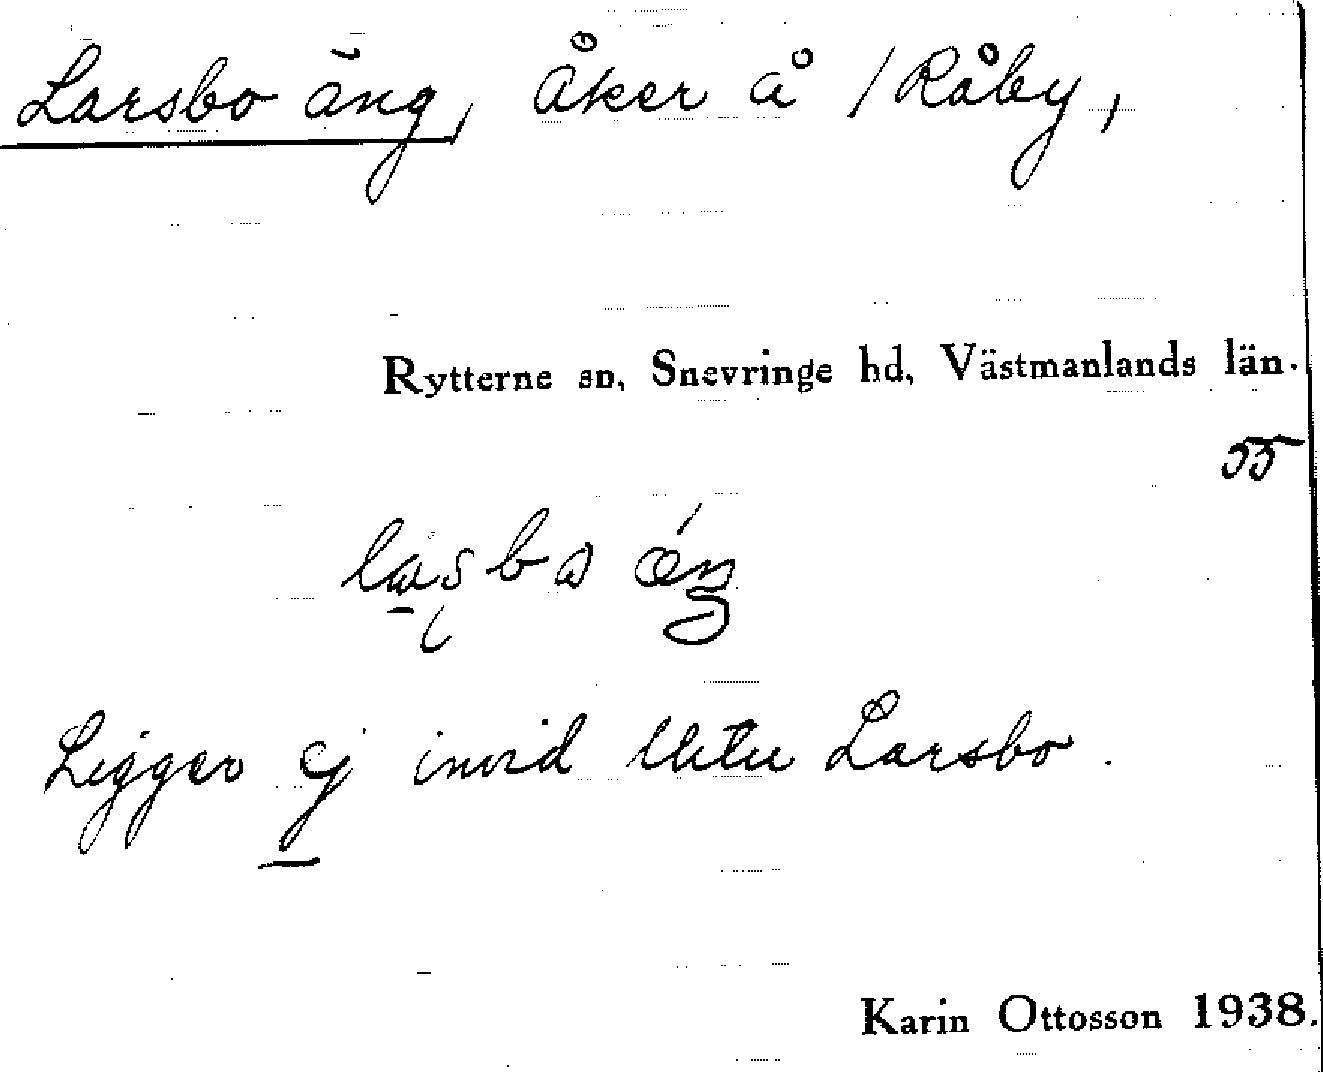 Larsbo äng, åker å /Råby,
Rytterne sn, Snevringe hd, Västmanlands län.
55
Ligger ej invid Larsbo.
Karin Ottosson 1938.